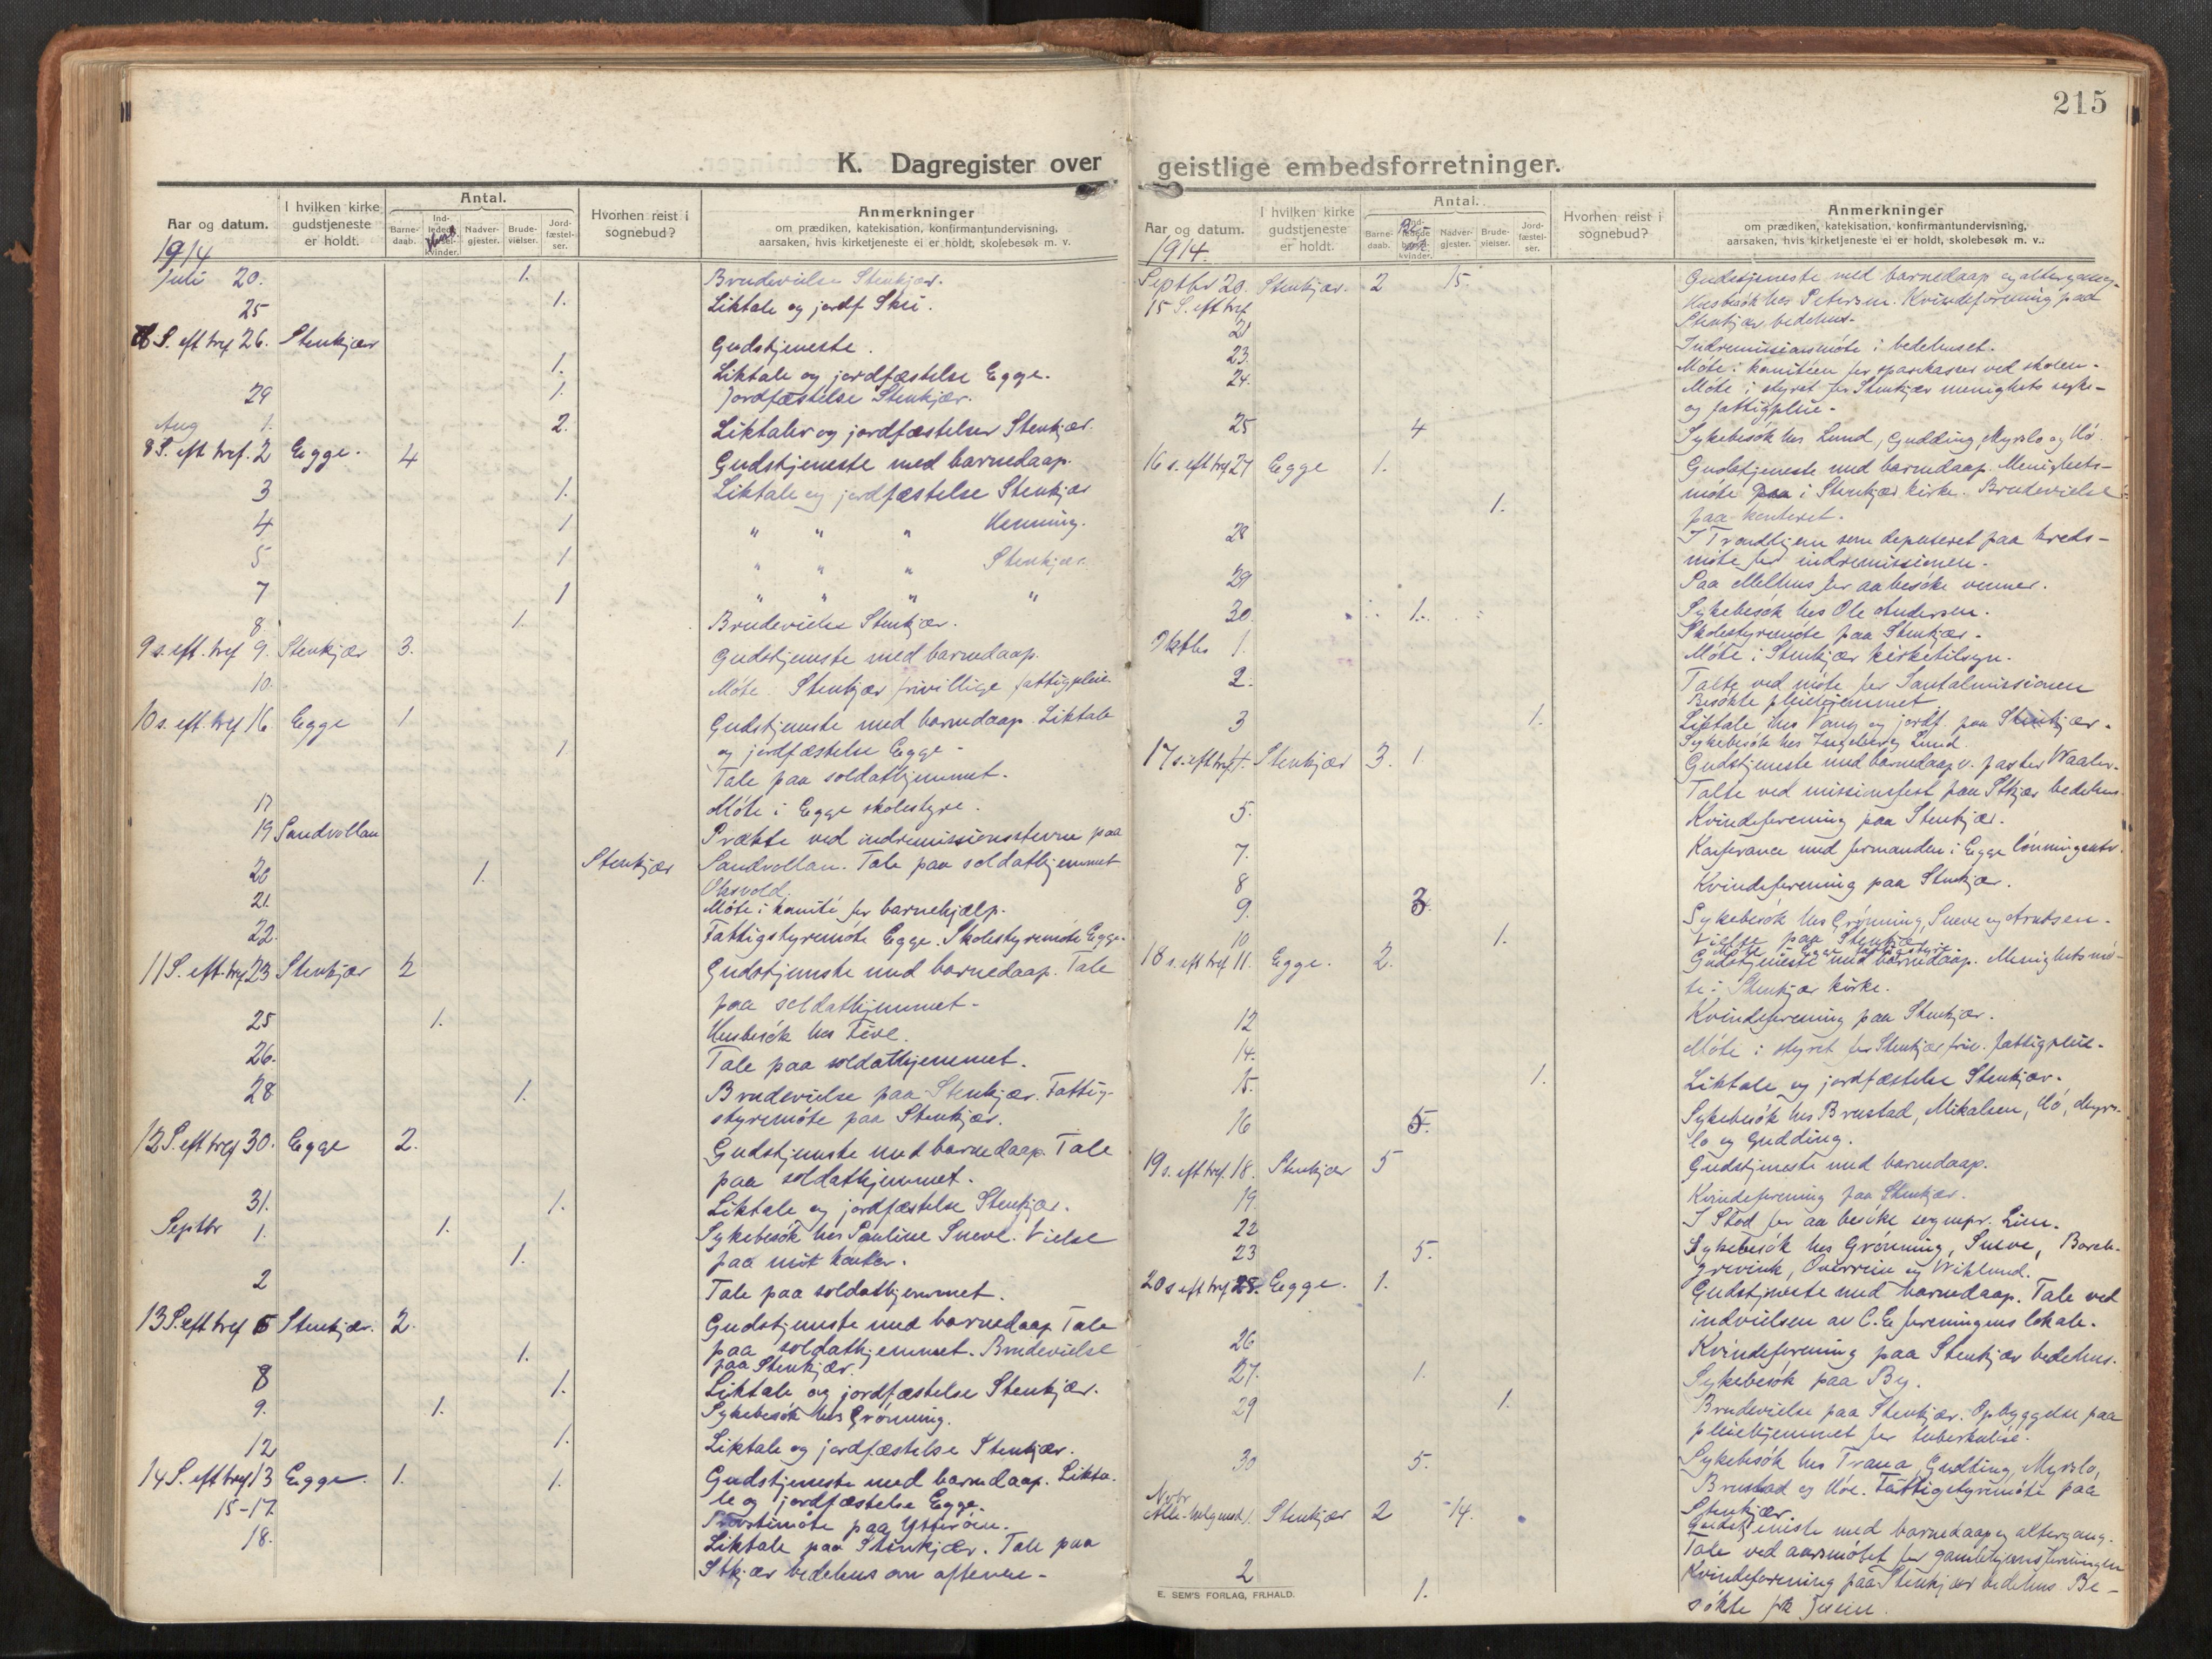 215
K. Dagregister over geistlige embedsforretninger.
Aar og datum.
I hvilken kirke gudstjeneste er holdt.
Antal.
Barne-daab.
Nadver-gjester.
Brude-vielser.
Jord-fæstel-ser.
Hvorhen reist i sognebud?
Anmerkninger
om prædiken, katekisation, konfirmantundervisning,
aarsaken, hvis kirketjeneste ei er holdt, skolebesøk m. v.
1914
Juli 20. 1. Brudevielse Stenkjær.
25 1. Liktale og jordf Skei.
S. eft tref 26. Stenkjær Gudstjeneste.
1. Liktale og jordfæstelse Egge.
29 1. Jordfæstelse Stenkjær.
Aug 1. 2. Liktaler og jordfæstelser Stenkjær.
8 S. eft tref. 2 Egge. 4 Gudstjeneste med barnedaap.
3 1. Liktale og jordfæstelse Stenkjær
4 1 " " " Henning.
5 1 " " " Stenkjær.
7 1 " " " "
8. 1. Brudevielse Stenkjær.
9 s. eft. tref 9. Stenkjær 3. Gudstjeneste med barnedaap.
10. Møte. Stenkjær frivillige fattigpleie
10 s. eft. tref 16 Egge 1 Gudstjeneste med barnedaap. Liktale
1. og jordfæstelse Egge -
Tale paa soldathjemmet.
17 Møte i Egge skolestyre.
19 Sandvollan Prækte ved indremissionsstevne paa
20 1. Stenkjær Sandvollan. Tale paa soldathjemmet
21. Møte i komité for barnehjælp.
22. Fattigstyremøte Egge. Skolestyremøte Egge.
11 S. eft tref 23 Stenkjær 2 Gudstjeneste med barnedaap. Tale
paa soldathjemmet-
25 1. Husbesøk hos
26. Tale paa soldathjemmet.
28 1. Brudevielse paa Stenkjær. Fattig-
styremøte paa Stenkjær.
12 S. eft tref 30. Egge 2. Gudstjeneste med barnedaap. Tale
paa soldathjemmet.
31. 1. Liktale og jordfæstelse Stenkjær.
Septbr 1. 1. Sykebesøk hos Pauline Sneve. Vielse
1. paa mit kontor.
2 Tale paa soldathjemmet.
13 S. eft tref 6 Stenkjær. 2. Gudstjeneste med barnedaap Tale
1. paa soldathjemmet. Brudevielse
paa Stenkjær.
8 1. Liktale og jordfæstelse Stenkjær.
9. 1. Sykebesøk hos Grønning.
12 1. Liktale og jordfæstelse Stenkjær.
14 S. eft tref 13 Egge. 1. 1. Gudstjeneste med barnedaap. Likta-
le og jordfæstelse Egge.
15-17. Provstimøte paa Ytterøen.
18. Liktale paa Stenkjær. Tale paa
Stkjær bedehus om aftenen-
Aar og datum.
I hvilken kirke gudstjeneste er holdt.
Antal.
Barne-daab.
Nadver-gjester.
Brude-vielser.
Jord-fæstel-ser.
Hvorhen reist i sognebud?
Anmerkninger
om prædiken, katekisation, konfirmantundervisning,
aarsaken, hvis kirketjeneste ei er holdt, skolebesøk m. v.:
1914.
Septbr 20. Stenkjær. 2 15. Gudstjeneste med barnedaap og altergang.
15 S. eft tref Husbesøk hos Petersen. Kvindeforening paa
Stenkjær bedehus.
21 Indremissionsmøte i bedehuset.
23. Møte i komitéen for sparekasser ved skolen.
24. Møte i styret for Stenkjær menighets syke-
og fattigpleie-
25 4 Sykebesøk hos Lund, Gudding, Myrslo og Hó.
16 s. eft tref 27 Egge 1. Gudstjeneste med barnedaap. Menighets-
møte i Stenkjær kirke. Brudevielse
1. paa kontoret.
28 I Trondhjem som deputeret paa kreds-
møte for indremissionen.
29 Paa Melhus for aa besøke venner.
30 1. Sykebesøk hos Ole Andersen.
Skolestyremøte paa Stenkjær.
Oktbr 1. Møte i Stenkjær kirketilsyn.
2. Talte ved møte for Santalmissionen
Besøkte pleiehjemmet
3 1. Liktale hos Vang og jordf. paa Stenkjær.
Sykebesøk hos Ingeborg Lund.
17 s. eft tref 4. Stenkjær 3. 1. Gudstjeneste med barnedaap v. pastor Waaler.
Talte ved missionsfest paa Stkjær bedehus
5. Kvindeforening paa Stenkjær.
7. Konferance med formanden i Egge
8 Kvindeforening paa Stenkjær.
9. 3. Sykebesøk hos Grønning, Sneve og Arntsen.
10 1. Vielse paa Stenkjær.
18 s. eft tref 11. Egge. 2. Gudstjeneste med barnedaap. Menighetsmø-
te i Stenkjær kirke.
12 Kvindeforening paa Stenkjær.
14. Møte i styret for Stenkjær friv. fattigpleie.
15. 1. Liktale og jordfæstelse Stenkjær.
16 5. Sykebesøk hos Brustad, Mikalsen, Hó, Myrs-
lo og Gudding.
19 s. eft tref. 18. Stenkjær 5 Gudstjeneste med barnedaap.
19. Kvindeforening paa Stenkjær.
22 I Stod for aa besøke sognepr. Lien.
23 5. Sykebesøk hos Grønning, Sneve, Borch-
grevink, Overrein og Wiklund.
20 s eft tref 25. Egge. 1. Gudstjeneste med barnedaap. Tale ved
indvielsen av C.E. foreningens lokale.
26 Kvindeforening paa Stenkjær bedehus.
27. 1. Sykebesøk paa By.
29 1. Brudevielse paa Stenkjær. Opbyggelse paa
pleiehjemmet for tuberkuløse.
30 5. Sykebesøk hos Trana, Gudding, Myrslo,
Brustad og Hóe. Fattigstyremøte paa
Stenkjær.
Novbr
Alle-helgensd 1. Stenkjær 2 14. Gudstjeneste med barnedaap og altergang.
Tale ved aarsmøtet for gamlehjemsforeningen
2 Kvindeforening paa Stenkjær bedehus. Be-
1. søkte
E. SEM'S FORLAG, FR.HALD.